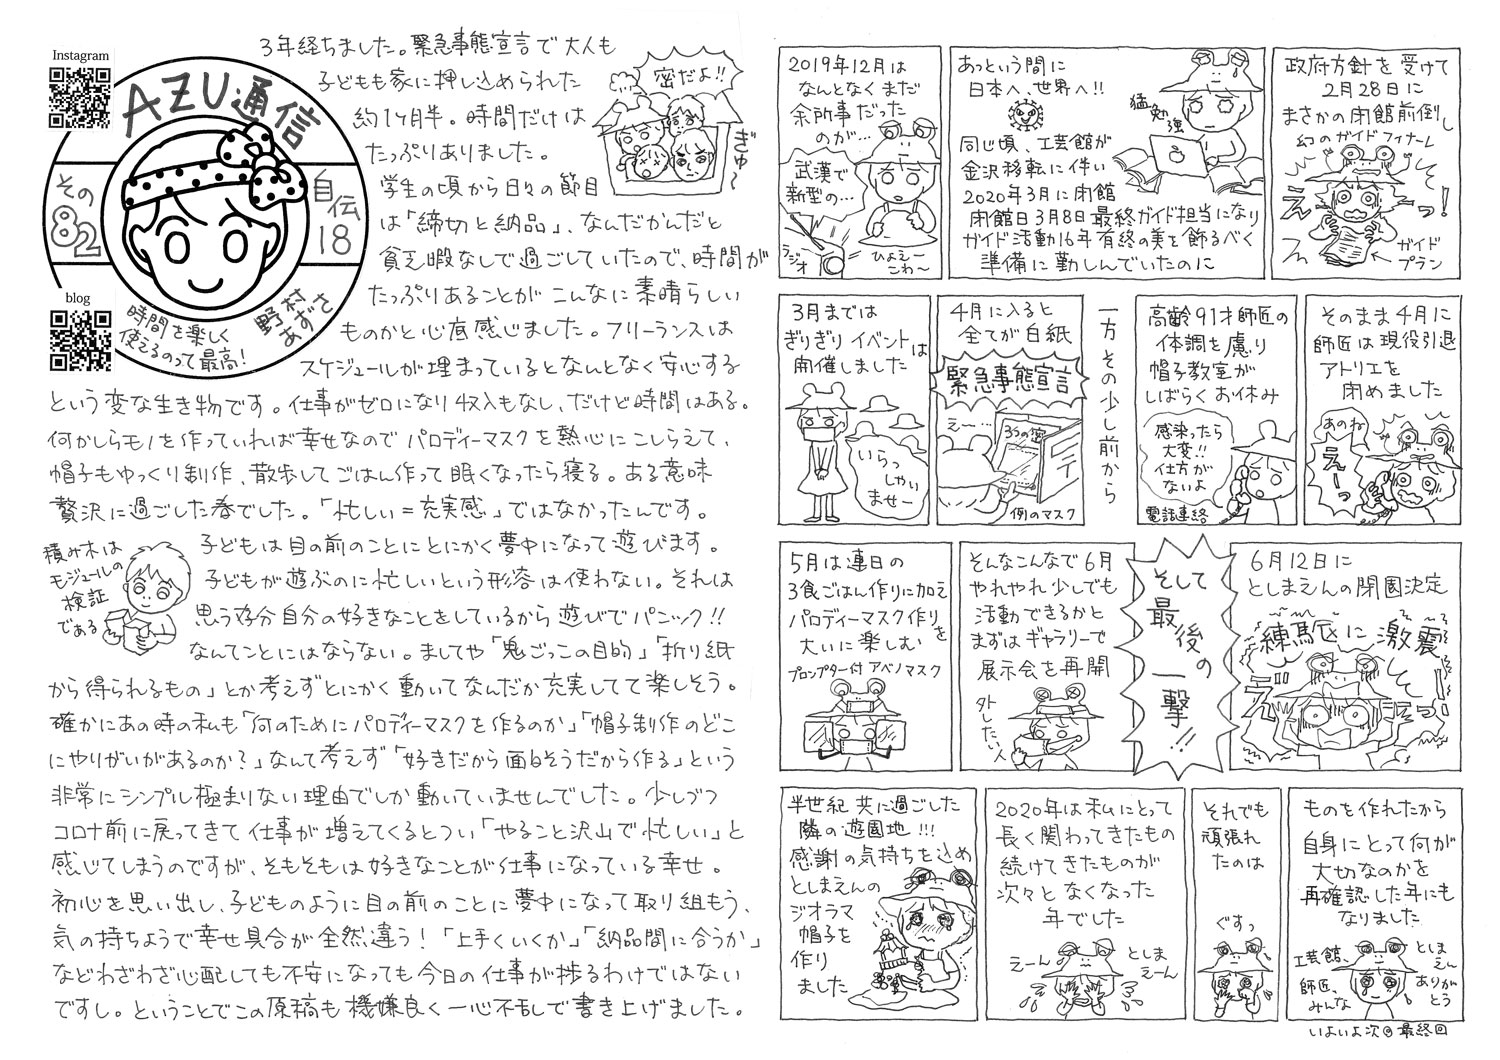 Instagram
AZU通信
その
82
自伝
18
blog
時間を楽しく
使えるのって最高!
野村あずさ
3年経ちました。緊急事態宣言で大人も
子どもも家に押し込められた
約1ヶ月半。時間だけは
たっぷりありました。
学生の頃から日々の節目
は「締切と納品」、なんだかんだと
貧乏暇なしで過ごしていたので、時間が
たっぷりあることがこんなに素晴らしい
ものかと心底感じました。フリーランスは
スケジュールが埋まっているとなんとなく安心する
という変な生き物です。仕事がゼロになり収入もなし、だけど時間はある。
何かしらモノを作っていれば幸せなのでパロディーマスクを熱心にこしらえて、
帽子もゆっくり制作、散歩してごはん作って眠くなったら寝る。ある意味
贅沢に過ごした春でした。「忙しい=充実感」ではなかったんです。
子どもは目の前のことにとにかく夢中になって遊びます。
子どもが遊ぶのに忙しいという形容は使わない。それは
思う存分自分の好きなことをしているから遊びでパニック!!
なんてことにはならない。ましてや「鬼ごっこの目的」「折り紙
から得られるもの」とか考えずとにかく動いてなんだか充実してて楽しそう。
確かにあの時の私も「何のためにパロディーマスクを作るのか」「帽子制作のどこ
にやりがいがあるのか?」なんて考えず「好きだから面白そうだから作る」という
非常にシンプル極まりない理由でしか動いていませんでした。少しづつ
コロナ前に戻ってきて仕事が増えてくるとつい「やること沢山で忙しい」と
感じてしまうのですが、そもそもは好きなことが仕事になっている幸せ。
初心を思い出し、子どものように目の前のことに夢中になって取り組もう、
気の持ちようで幸せ具合が全然違う!「上手くいくか」「納品間に合うか」
などわざわざ心配しても不安になっても今日の仕事が捗るわけではない
ですし。ということでこの原稿も機嫌良く一心不乱で書き上げました。
密だよ!!
ぎゅ〜
積み木は
モジュールの
検証
である
2019年12月は
なんとなくまだ
余所事だった
のが…
武漢で
新型の…
ラジオ
ひょえー
こわ〜
あっという間に
日本へ、世界へ!!
猛勉強
同じ頃、工芸館が
金沢移転に伴い
2020年3月に閉館
閉館日3月8日最終ガイド担当になり
ガイド活動16年有終の美を飾るべく
準備に勤しんでいたのに
政府方針を受けて
2月28日に
まさかの閉館前倒し
幻のガイドフィナーレ
えーっ!
ガイド
プラン
3月までは
ぎりぎりイベントは
開催しました
いらっ
しゃい
ませー
4月に入ると
全てが白紙
緊急事態宣言
えー…
3つの密
例のマスク
一方その少し前から
高齢91才師匠の
体調を慮り
帽子教室が
しばらくお休み
感染ったら
大変!!
仕方が
ないよ
電話連絡
そのまま4月に
師匠は現役引退
アトリエを
閉めました
あのね
えーっ
5月は連日の
3食ごはん作りに加え
パロディーマスク作りを
大いに楽しむ
プロンプター付アベノマスク
そんなこんなで6月
やれやれ少しでも
活動できるかと
まずはギャラリーで
展示会を再開
外したい人
そして
最後の
一撃!!
6月12日に
としまえんの閉園決定
練馬区に激震
えーっ!
半世紀共に過ごした
隣の遊園地!!!
感謝の気持ちを込め
としまえんの
ジオラマ
帽子を
作り
ました
2020年は私にとって
長く関わってきたもの
続けてきたものが
次々となくなった
年でした
えーん
としま
えーん
それでも
頑張れ
たのは
ぐすっ
ものを作れたから
自身にとって何が
大切なのかを
再確認した年にも
なりました
工芸館、
師匠、
みんな
としま
えん
ありが
とう
いよいよ次回最終回